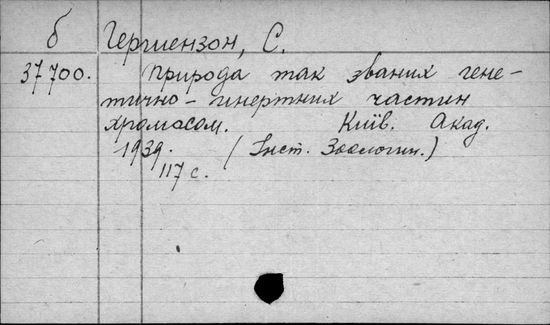 б Гершензон, С.
37700. Природа так званих гене-
тично-инертних частин
хромосом. Київ. Акад.
1939. (Інст. Зоологии.)
117 с.